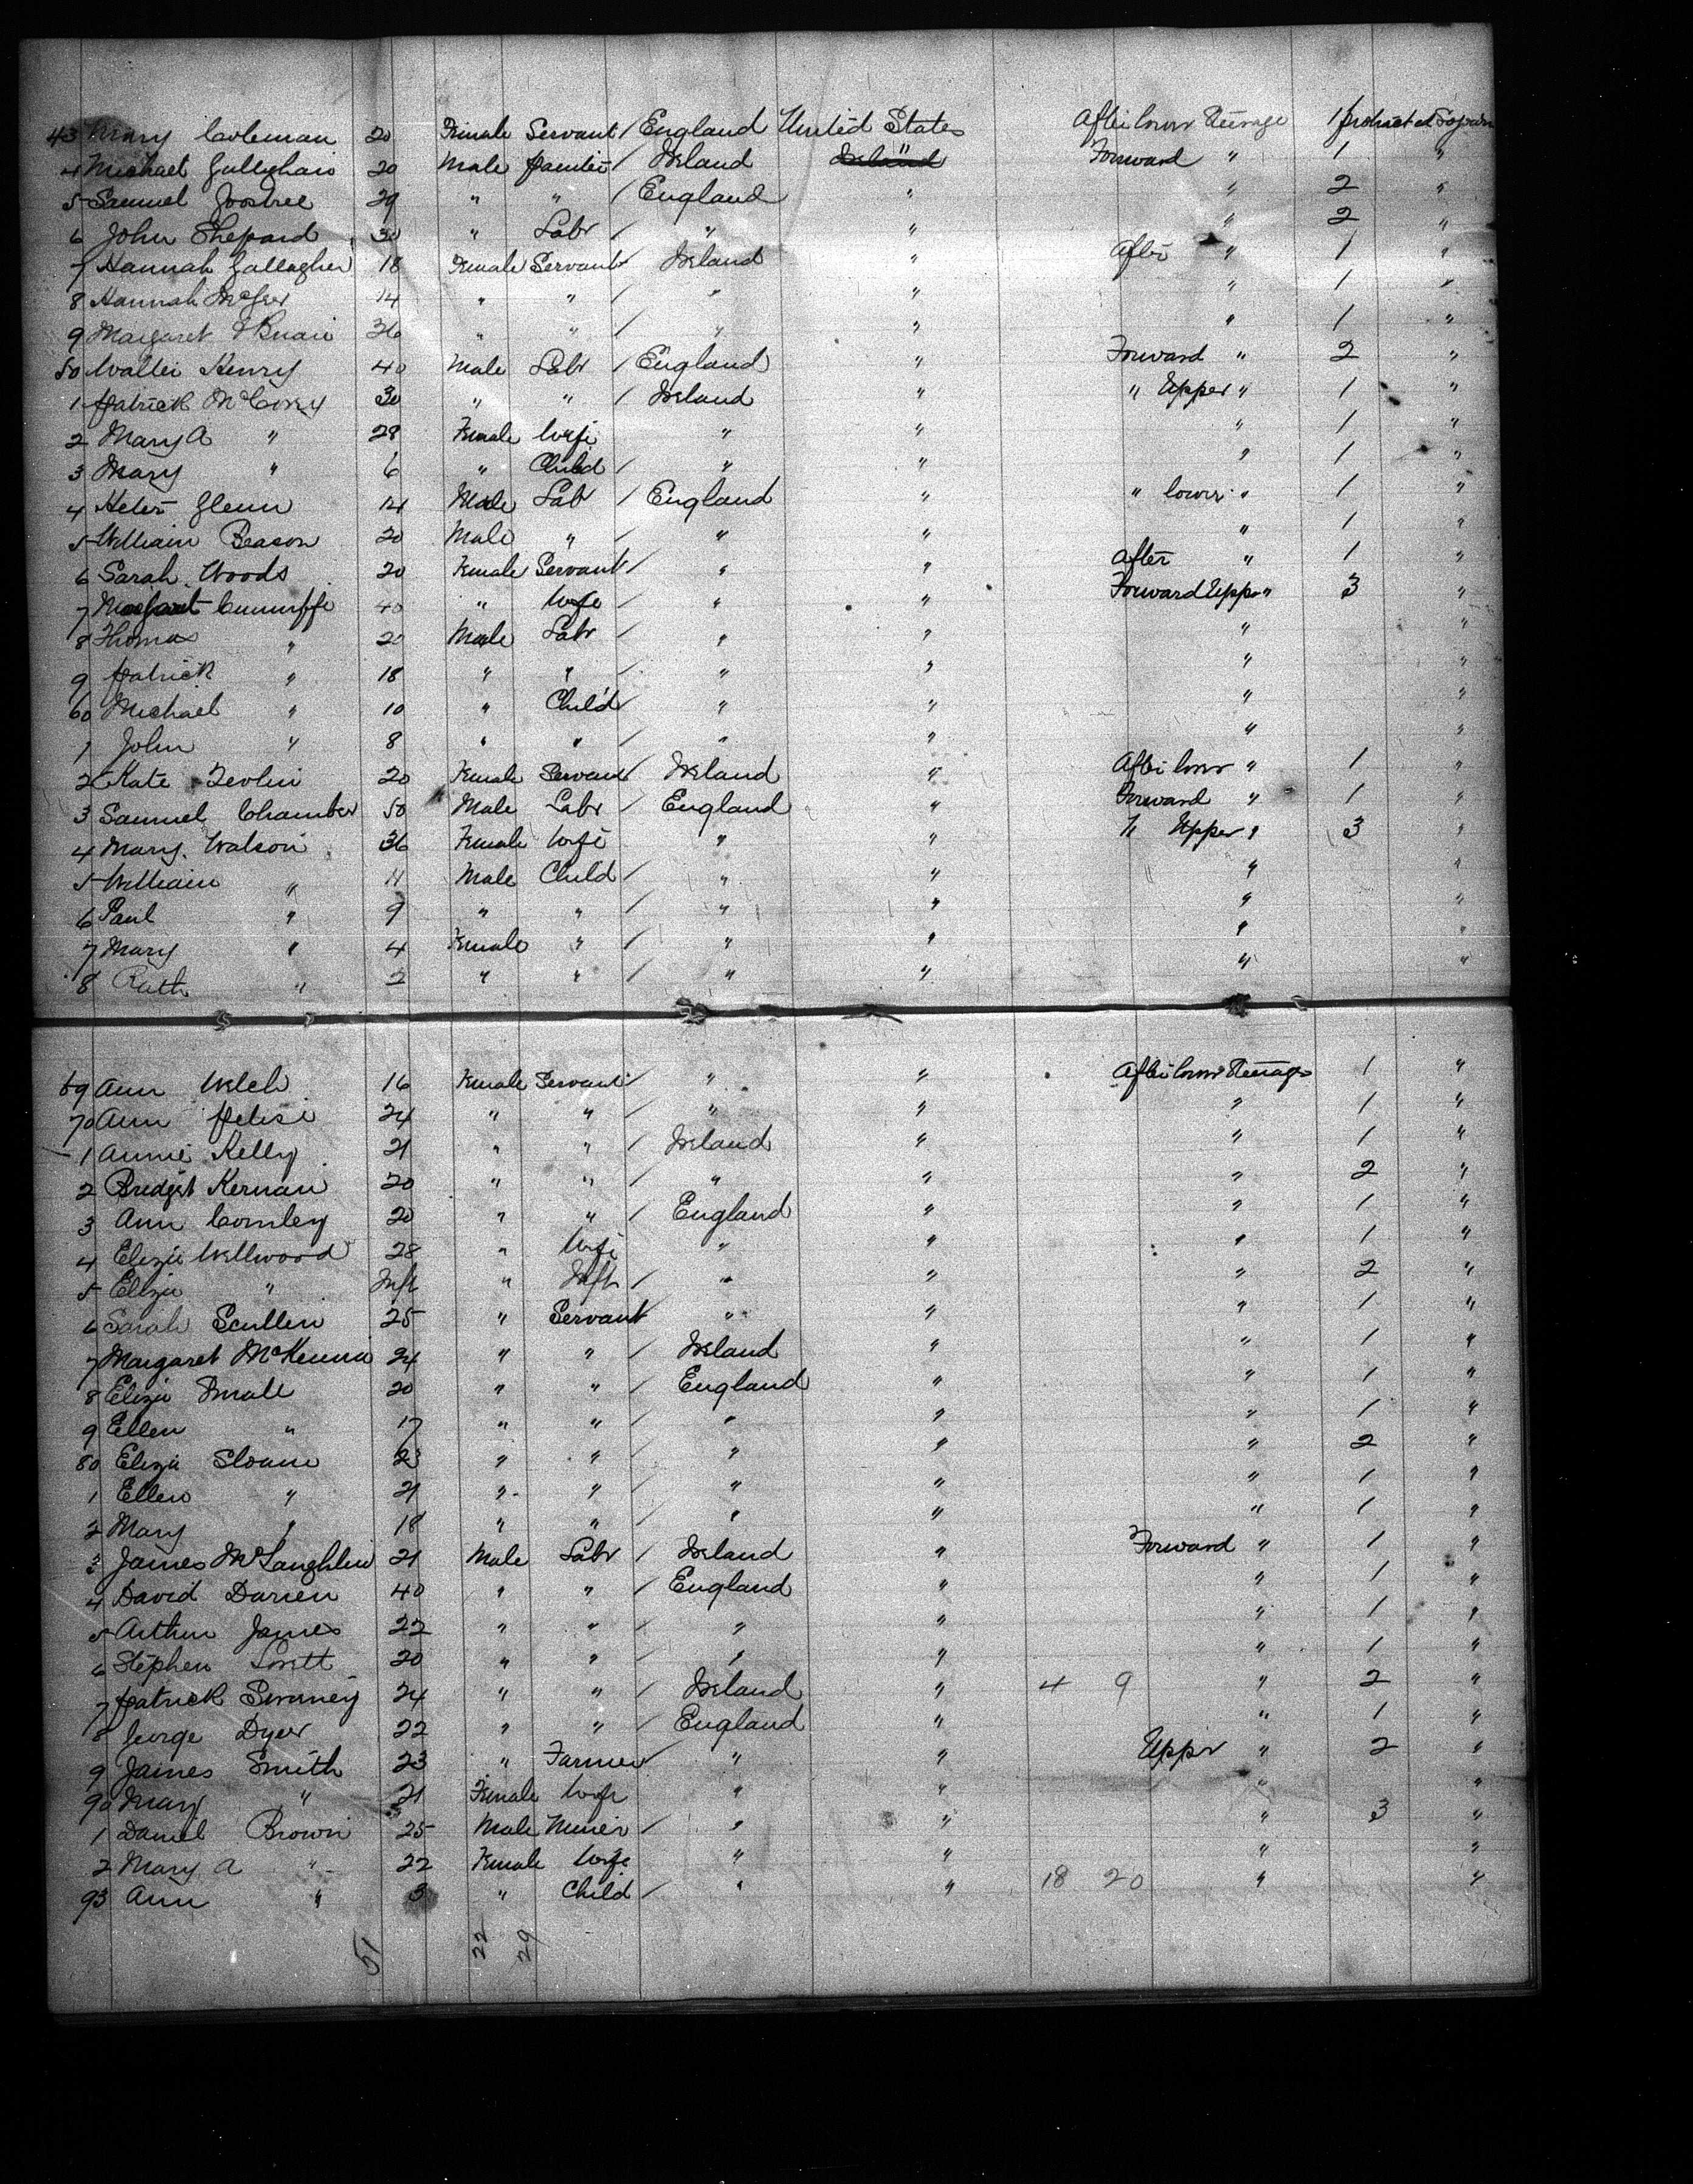 43 Mary Coleman 20 Female Servant / England United States After lower Steerage 1 protracted Sojourn
4 Michael 20 Male painter / Ireland " Forward " 1 "
5 Samuel 29 " " / England " " 2 "
6 John Shepard 30 " Labr / " " " 2 "
7 Hannah Gallagher 18 Female Servant Ireland " After " 1 "
8 Hannah 14 " " / " " " 1 "
9 Margaret 36 " " / " " " 1 "
50 Walter Henry 40 Male Labr / England " Forward " 2 "
1 Patrick 30 " " / Ireland " " Upper " 1 "
2 Mary A " 28 Female Wife " " " 1 "
3 Mary " 6 " Child / " " " 1 "
4 Glenn Male Labr / England " " lower " 1 "
5 William Beason 20 Male " / " " " 1 "
6 Sarah Woods 20 Female Servant / " " After " 1 "
7 Margaret 40 " Wife / " " Forward Uppr " 3 "
8 Thomas " 20 Male Labr / " " " "
9 Patrick " 18 " " / " " " "
60 Michael " 10 " Child / " " " "
1 John " 8 " " / " " " "
2 Kate Devlin 20 Female Servant / Ireland " After lower " 1 "
3 Samuel Chamber 50 Male Labr / England " Forward " 1 "
4 Mary Watson 36 Female Wife " " " Upper " 3 "
5 William " 11 Male Child / " " " "
6 Paul " 9 " " / " " " "
7 Mary " 4 Female " / " " " "
8 Ruth " 2 " " / " " " "
69 Ann Welch 16 Female Servant / " " After lower Steerage 1 "
70 Ann 24 " " / " " " 1 "
1 Annie Kelly 21 " " / Ireland " " 1 "
2 Bridget Kernan 20 " " / " " " 2 "
3 Ann Comley 20 " " / England " " 1 "
4 Eliza Wellwood 28 " Wife " " " 1 "
5 Eliza " Inft " Inft / " " " 2 "
6 Sarah Scullen 25 " Servant " " " 1 "
7 Margaret McKenna 24 " " / Ireland " " 1 "
8 Eliza Small 20 " " / England " " 1 "
9 Ellen " 17 " " / " " " 1 "
80 Eliza Sloane 23 " " / " " " 2 "
1 Ellen " 21 " " / " " " 1 "
2 Mary " 18 " " / " " " 1 "
3 James McLaughlin 21 Male Labr / Ireland " Forward " 1 "
4 David Darien 40 " " / England " " 1 "
5 Arthur James 22 " " / " " " 1 "
6 Stephen Lovett 20 " " / " " " 1 "
7 Patrick Swarney 24 " " / Ireland " 4 9 " 2 "
8 George Dyer 22 " " / England " " 1 "
9 James Smith 23 " Farmer / " " Uppr " 2 "
90 Mary " 21 Female Wife " " " "
1 Daniel Brown 25 Male Miner / " " " 3 "
2 Mary A " 22 Female Wife " " " "
93 Ann " 3 " Child / " " 18 20 " "
51 22 29